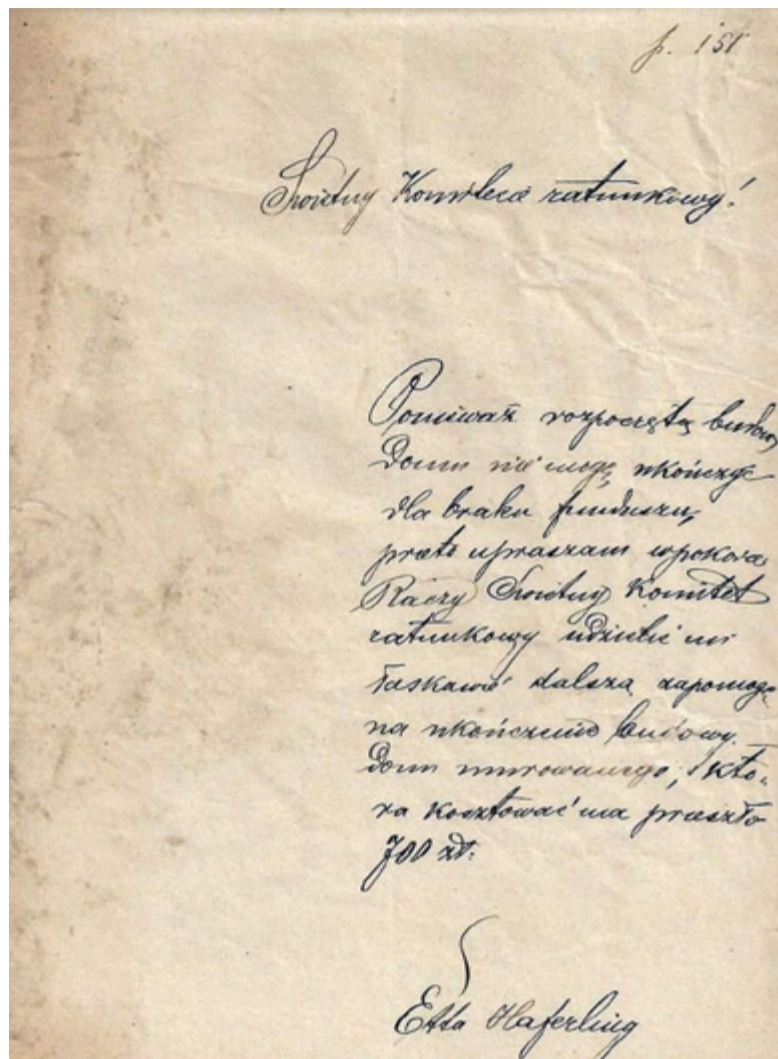 p. 151
Świetny Komitecie ratunkowy!
Ponieważ rozpoczętą budowę
Domu nie mogę ukończyć
dla braku funduszu,
przeto upraszam w pokorze
Raczy Świetny Komitet
ratunkowy udzielić mi
łaskawie dalszą zapomogę
na ukończenie budowy
Domu murowanego, któ-
ra kosztować ma przeszło
700 zł.
Etta Haferling